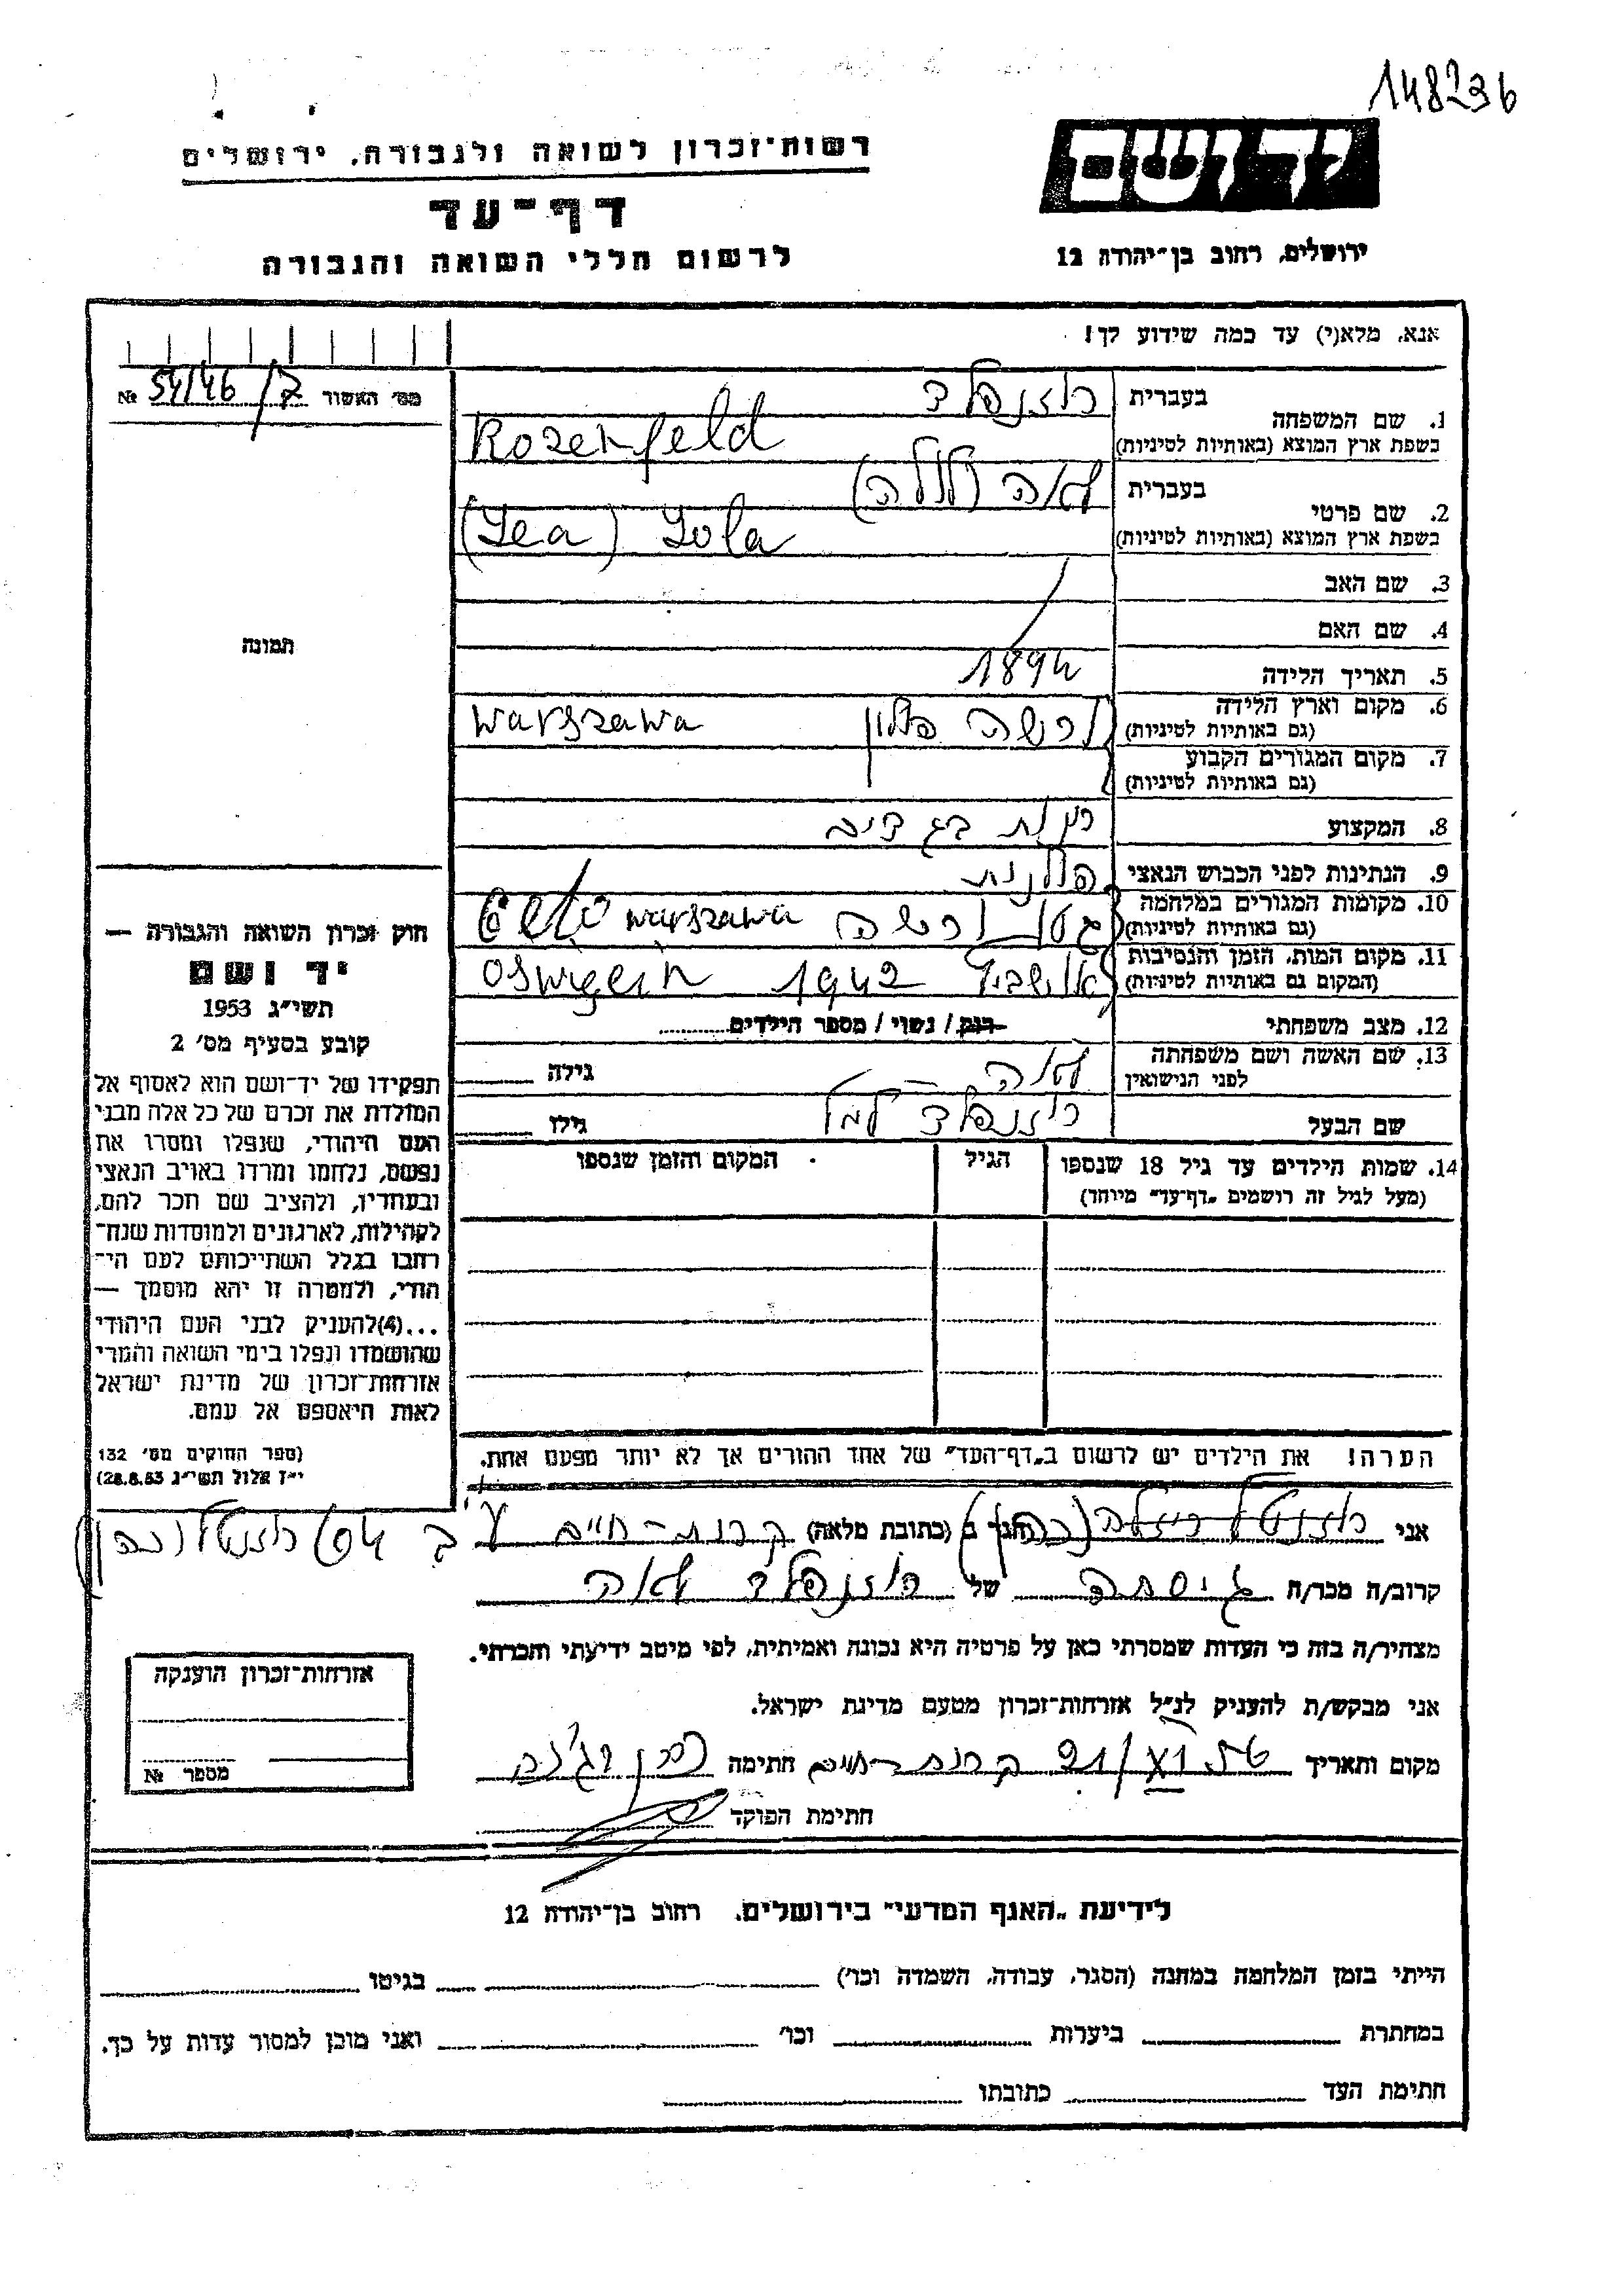 148236
רשות־זכרון לשואה ולגבורה, ירושלים
יד ושם
דף־עד
לרשום חללי השואה והגבורה
ירושלים, רחוב בן־יהודה 12
אנא, מלא(י) עד כמה שידוע לך!
מס' האשור № 54/46/7
1. שם המשפחה
בעברית רוזנפלד
בשפת ארץ המוצא (באותיות לטיניות) Rozenfeld
2. שם פרטי
בעברית לאה (לולה)
בשפת ארץ המוצא (באותיות לטיניות) (Lea) Lola
3. שם האב
4. שם האם
תמונה
5. תאריך הלידה 1894
6. מקום וארץ הלידה (גם באותיות לטיניות) ורשה פולין Warszawa
7. מקום המגורים הקבוע (גם באותיות לטיניות)
8. המקצוע
9. הנתינות לפני הכבוש הנאצי פולנית
10. מקומות המגורים במלחמה (גם באותיות לטיניות) גטו ורשה Geto Warszawa
11. מקום המות, הזמן והנסיבות (המקום גם באותיות לטיניות) 1942
12. מצב משפחתי רווק / נשוי / מספר הילדים
13. שם האשה ושם משפחתה לפני הנישואין לאה גילה
שם הבעל רוזנפלד גילו
14. שמות הילדים עד גיל 18 שנספו (מעל לגיל זה רושמים „דף־עד" מיוחד)
הגיל
המקום והזמן שנספו
חוק זכרון השואה והגבורה —
יד ושם
תשי״ג 1953
קובע בסעיף מס' 2
תפקידו של יד־ושם הוא לאסוף אל
המולדת את זכרם של כל אלה מבני
העם היהודי, שנפלו ומסרו את
נפשם, נלחמו ומרדו באויב הנאצי
ובעוזריו, ולהציב שם וזכר להם,
לקהילות, לארגונים ולמוסדות שנח־
רבו בגלל השתייכותם לעם הי־
הודי, ולמטרה זו יהא מוסמך —
...(4)להעניק לבני העם היהודי
שהושמדו ונפלו בימי השואה והמרי
אזרחות־זכרון של מדינת ישראל
לאות היאספם אל עמם.
(ספר החוקים מס' 132
י״ז אלול תשי״ג 28.8.53)
הערה! את הילדים יש לרשום ב„דף־העד" של אחד ההורים אך לא יותר מפעם אחת.
אני הגר ב (כתובת מלאה) קרית-חיים
קרוב/ה מכר/ה גיסתה של רוזנפלד לאה
מצהיר/ה בזה כי העדות שמסרתי כאן על פרטיה היא נכונה ואמיתית, לפי מיטב ידיעתי והכרתי.
אני מבקש/ת להעניק לנ״ל אזרחות־זכרון מטעם מדינת ישראל.
מקום ותאריך קרית-חיים חתימה
חתימת הפוקד
אזרחות־זכרון הוענקה
מספר №
לידיעת „האגף המדעי" בירושלים, רחוב בן־יהודה 12
הייתי בזמן המלחמה במחנה (הסגר, עבודה, השמדה וכו') בגיטו
במחתרת ביערות וכו' ואני מוכן למסור עדות על כך.
חתימת העד כתובתו